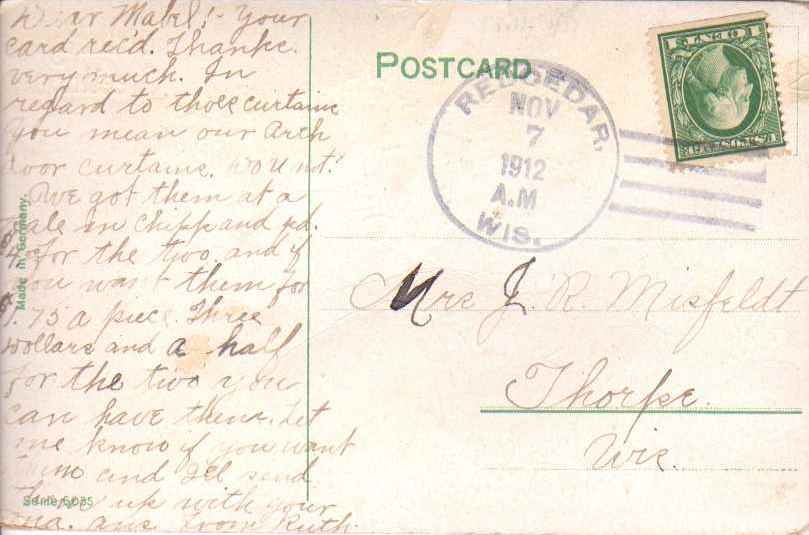 Dear Mabel:- Your
card rec'd. Thanks.
very much. In
regard to those curtains
you mean our Arch
door curtains, dou not?
We got them at a
sale in Chipp and pd.
$4. for the two and if
you want them for
$1.75 a piece. Three
dollars and a half
for the two you
can have them. Let
me know if you want
them and I'll send
them up with your
ma. ans. from Ruth.
Made in Germany.
Serie 6035
POSTCARD
RED CEDAR,
NOV
7
1912
A.M
WIS.
U.S. POSTAGE
Mrs J. R. Misfeldt
Thorpe.
Wis.